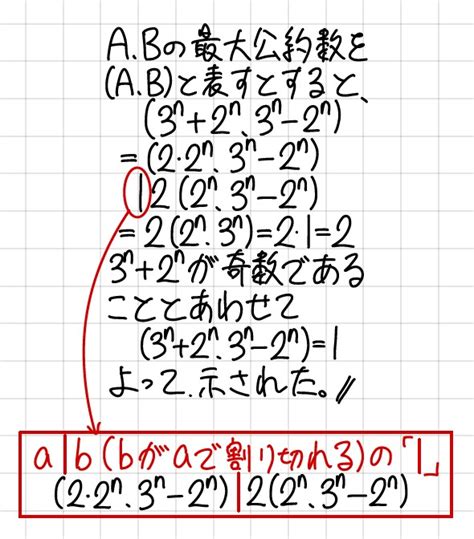 A.Bの最大公約数を
(A.B)と表すとすると、
(3ⁿ+2ⁿ、3ⁿ-2ⁿ)
=(2・2ⁿ、3ⁿ-2ⁿ)
|2(2ⁿ、3ⁿ-2ⁿ)
=2(2ⁿ、3ⁿ)=2・1=2
3ⁿ+2ⁿが奇数である
こととあわせて
(3ⁿ+2ⁿ、3ⁿ-2ⁿ)=1
よって、示された。//
a|b(bがaで割り切れる)の「|」
(2・2ⁿ、3ⁿ-2ⁿ)|2(2ⁿ、3ⁿ-2ⁿ)